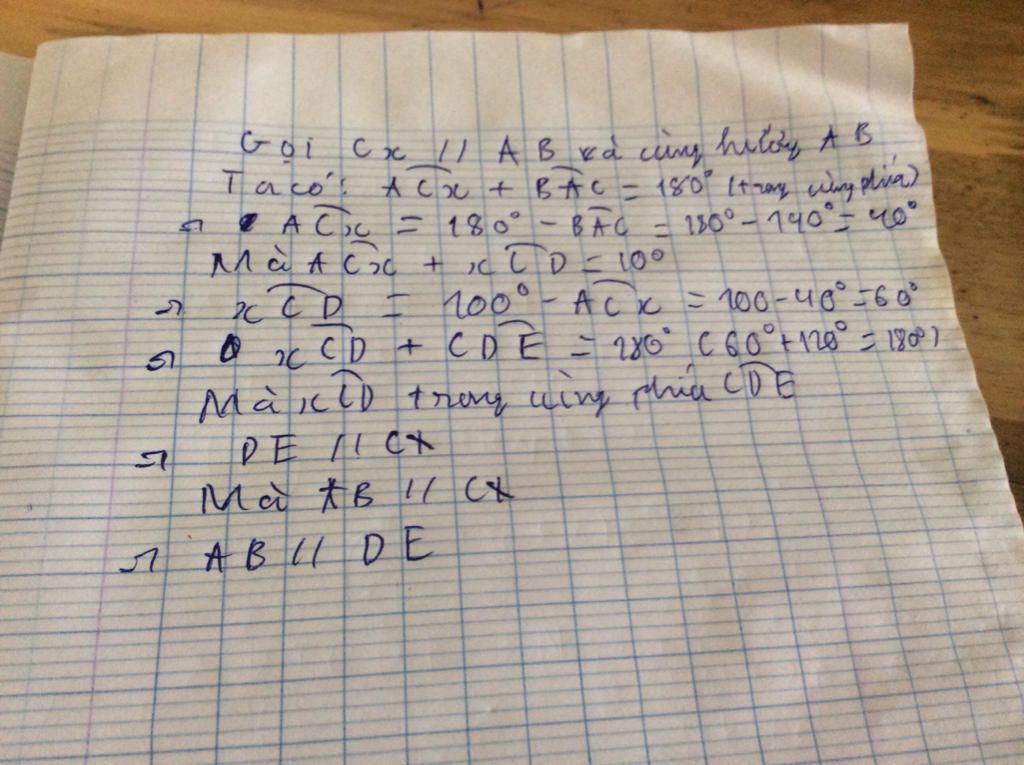 Gọi Cx // AB và cùng hướng AB
Ta có: ACx + BAC = 180° (trong cùng phía)
=> ACx = 180° - BAC = 180° - 140° = 40°
Mà ACx + xCD = 100
=> xCD = 100° - ACx = 100 - 40° = 60°
=> xCD + CDE = 180° (60° + 120° = 180°)
Mà xCD trong cùng phía CDE
=> DE // Cx
Mà AB // Cx
=> AB // DE